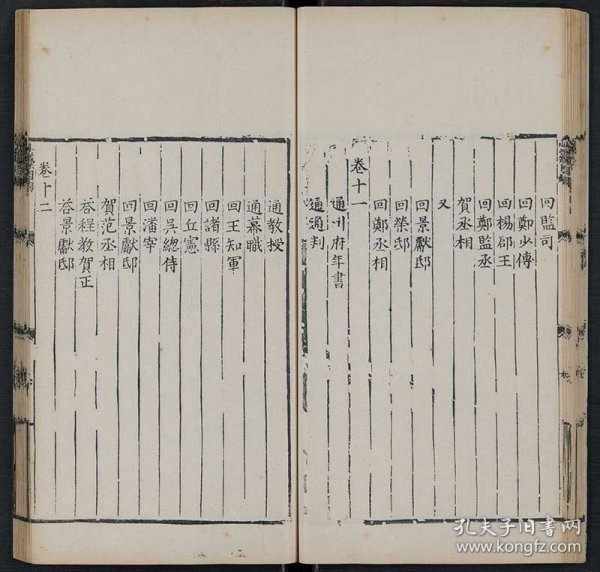 回監司
回鄭少傅
回楊郡王
回鄭監丞
賀丞相
又
回景獻邸
回榮邸
回鄭丞相
卷十一
通州府年書
通通判
通教授
通幕職
回王知軍
回諸縣
回丘憲
回吳總侍
回潘宰
回景獻邸
賀范丞相
答程教賀正
答景獻邸
卷十二
孔夫子旧书网
www.kongfz.com